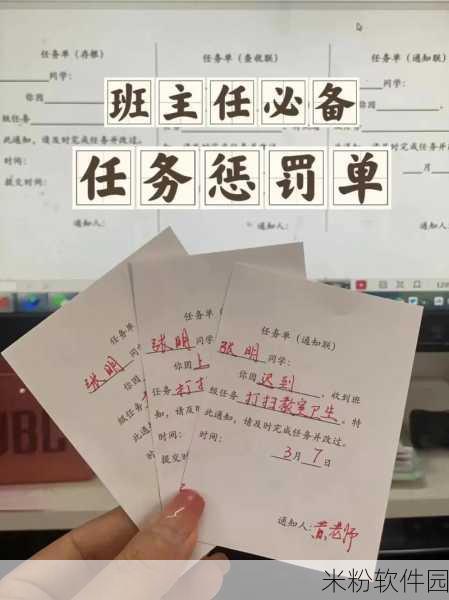 任务单（存根）
任务单（查收联）
任务单（通知联）
同学：
同学：
同学：
你因
级任务
此通知，请及时完成任务并改过。
时间：
提交时间：
月
通知人：
通知人
班主任必备
任务惩罚单
任务单
张明
同学
你因
级任务
此通知
时间：
提交时间
任务单（
张明同学
你因上
任务打扫
知，请及时
时间：
提交时间：
任务单（通知联）
张明同学：
你因迟到，收到班
级任务打扫教室卫生。特
此通知，请及时完成任务并改过。
时间：
3月7日
通知人：黄老师
JBL
米粉软件园